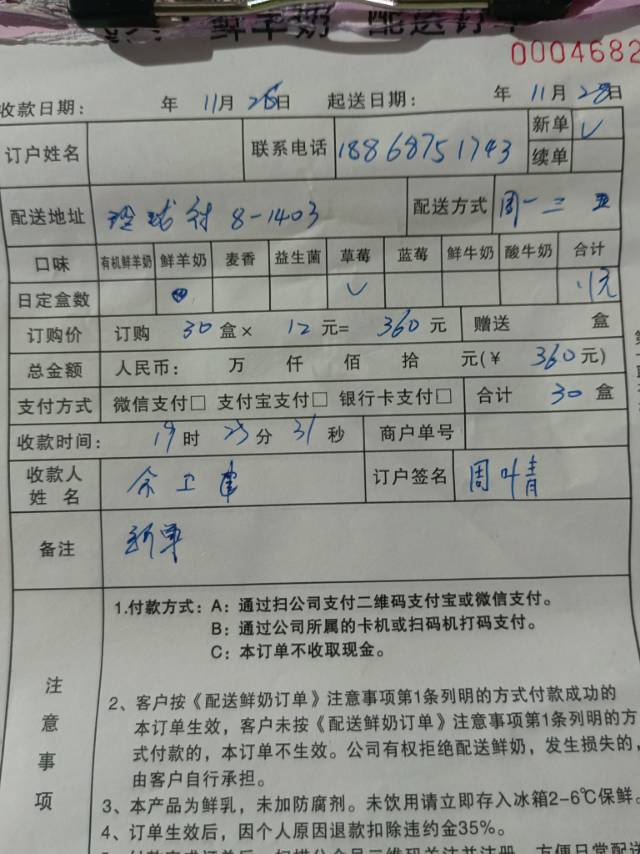 鲜羊奶 配送订单
0004682
收款日期: 年 11月 26日 起送日期: 年 11月 28日
订户姓名 联系电话 18868751743 新单 √
续单
配送地址 8-1403 配送方式 周一三五
口味 有机鲜羊奶 鲜羊奶 麦香 益生菌 草莓 蓝莓 鲜牛奶 酸牛奶 合计
日定盒数 √
订购价 订购 30 盒× 12 元= 360 元 赠送 盒
总金额 人民币: 万 仟 佰 拾 元(¥ 360 元)
支付方式 微信支付□ 支付宝支付□ 银行卡支付□ 合计 30 盒
收款时间: 19时 23分 31秒 商户单号
收款人
姓 名 余卫建 订户签名 周叶青
备注 新单
注意事项
1.付款方式:A:通过扫公司支付二维码支付宝或微信支付。
B:通过公司所属的卡机或扫码机打码支付。
C:本订单不收取现金。
2、客户按《配送鲜奶订单》注意事项第1条列明的方式付款成功的
本订单生效,客户未按《配送鲜奶订单》注意事项第1条列明的方
式付款的,本订单不生效。公司有权拒绝配送鲜奶,发生损失的,
由客户自行承担。
3、本产品为鲜乳,未加防腐剂。未饮用请立即存入冰箱2-6℃保鲜。
4、订单生效后,因个人原因退款扣除违约金35%。